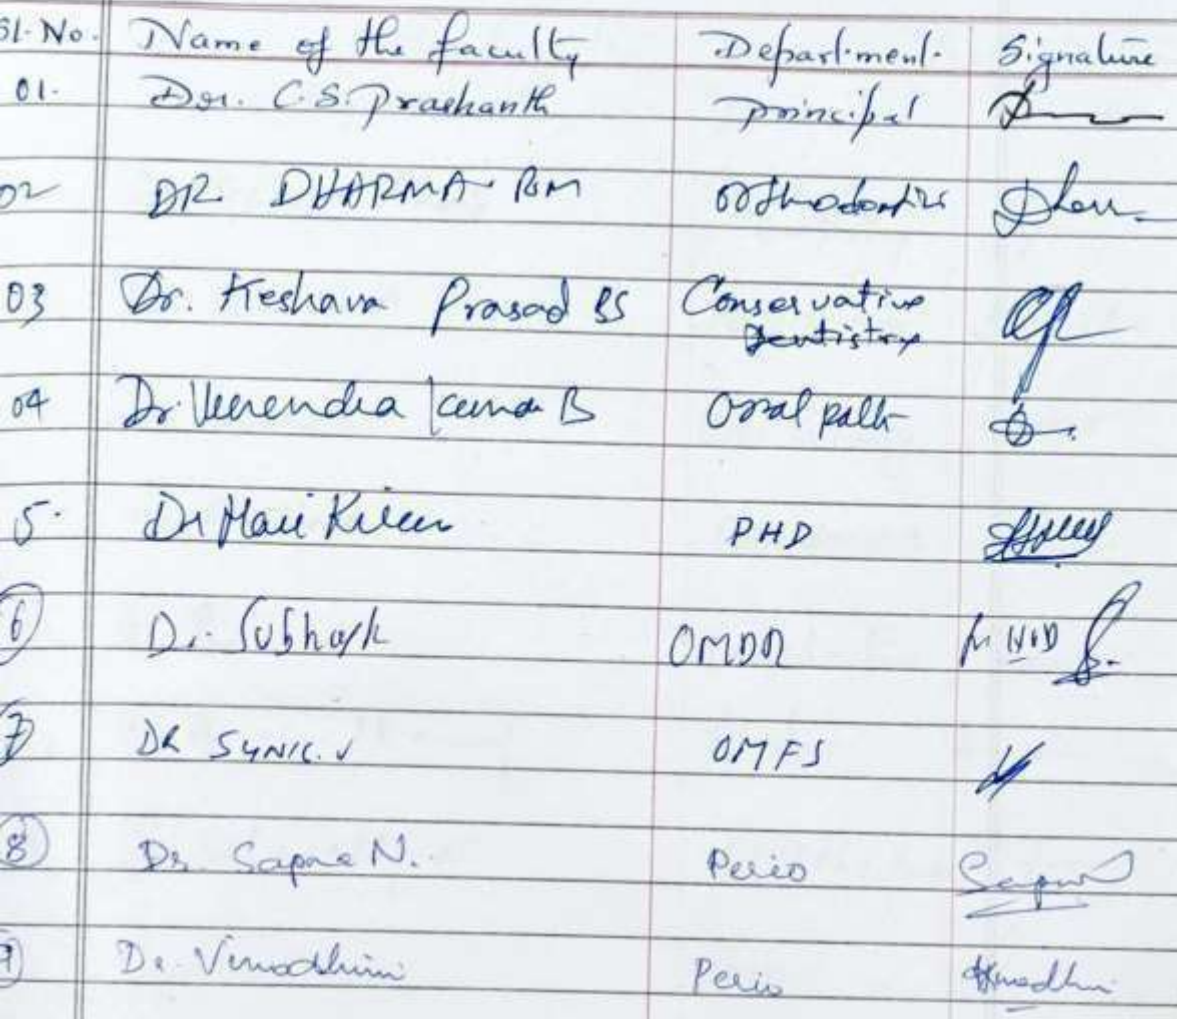 Sl. No. Name of the faculty Department Signature
01. Dr. C.S. Prashanth Principal
02 DR. DHARMA RM Orthodontics Dharm
03 Dr. Keshava Prasad BS Conservative
Dentistry
04 Dr. Veerendra Kumar B Oral path
5. Dr Hari PHD
6 Dr. Subhash OMDR
7 DR SUNIL. V OMFS
8 Dr. Sapna N. Perio Sapna
9 Dr. Vinodhini Perio Vinodhini